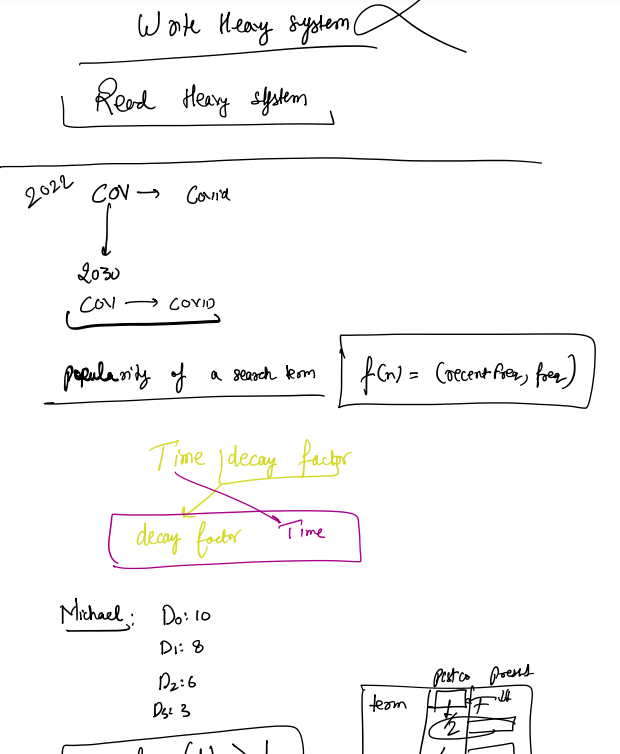 Write Heavy system
Read Heavy system
2022 COV → Covid
2030
COV → COVID
popularity of a search term
f(n) = (recent freq, freq)
Time decay factor
decay factor Time
Michael: D0: 10
D1: 8
D2: 6
D3: 3
past present
term